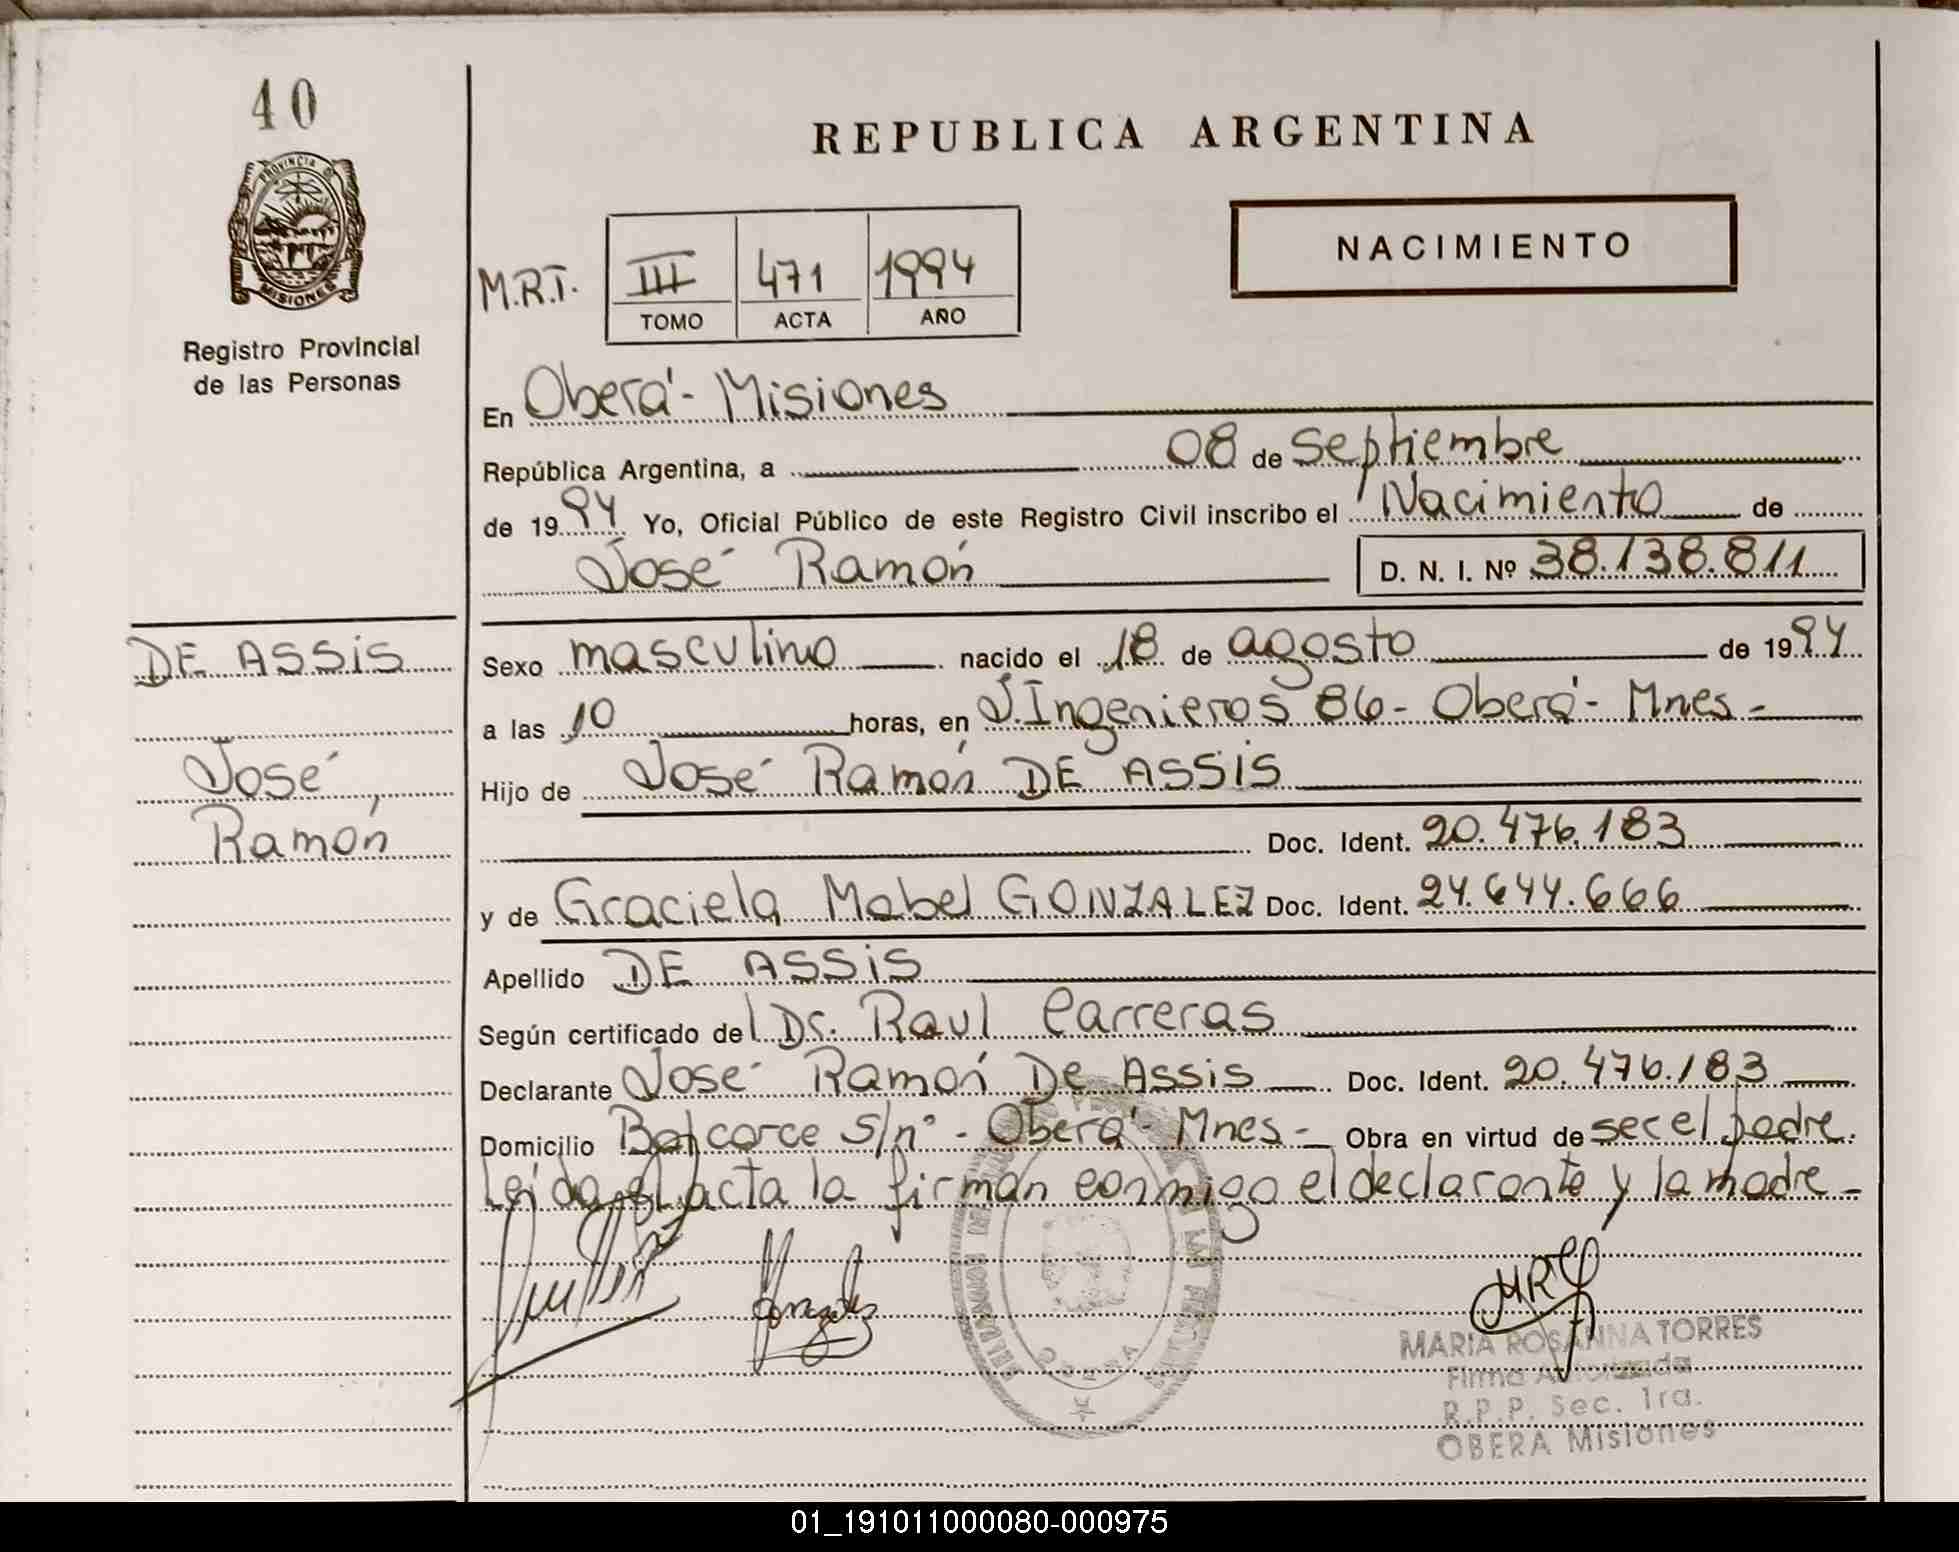 40
PROVINCIA DE
MISIONES
Registro Provincial
de las Personas
REPUBLICA ARGENTINA
NACIMIENTO
M.R.T. III 471 1994
TOMO ACTA AÑO
En Oberá - Misiones
República Argentina, a 08 de Septiembre
de 1994 Yo, Oficial Público de este Registro Civil inscribo el Nacimiento de
José Ramón D. N. I. Nº 38.138.811
DE ASSIS
José
Ramón
Sexo masculino nacido el 18 de agosto de 1994
a las 10 horas, en J. Ingenieros 86 - Oberá - Mnes -
Hijo de José Ramón DE ASSIS
Doc. Ident. 20.476.183
y de Graciela Mabel GONZALEZ Doc. Ident. 24.644.666
Apellido DE ASSIS
Según certificado del Dr. Raul Carreras
Declarante José Ramón De Assis Doc. Ident. 20.476.183
Domicilio Balcarce S/nº - Oberá - Mnes - Obra en virtud de ser el padre.
Leída el acta la firman conmigo el declarante y la madre -
Gonzalez
MRT
MARIA ROSANNA TORRES
Firma Autorizada
R.P.P. Sec. 1ra.
OBERA Misiones
OBERA
01_191011000080-000975